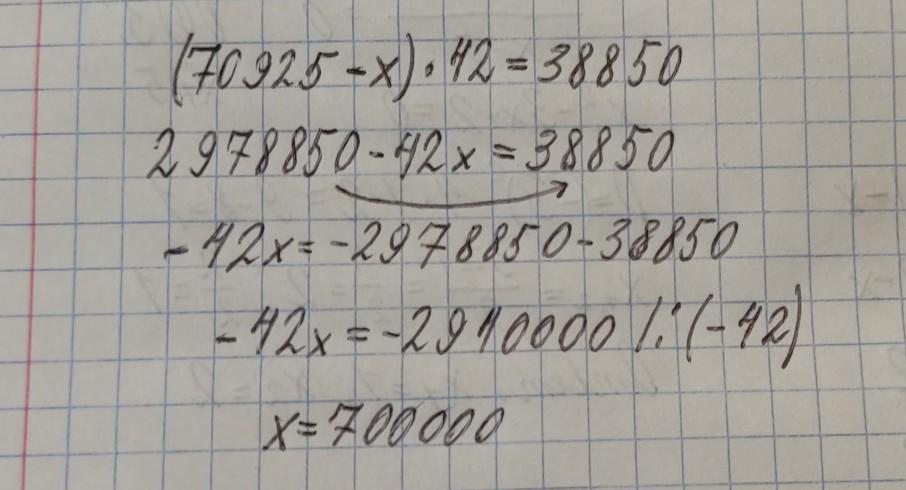 (70925-x)·42=38850
2978850-42x=38850
-42x=-2978850-38850
-42x=-2940000 |:(-42)
x=700000